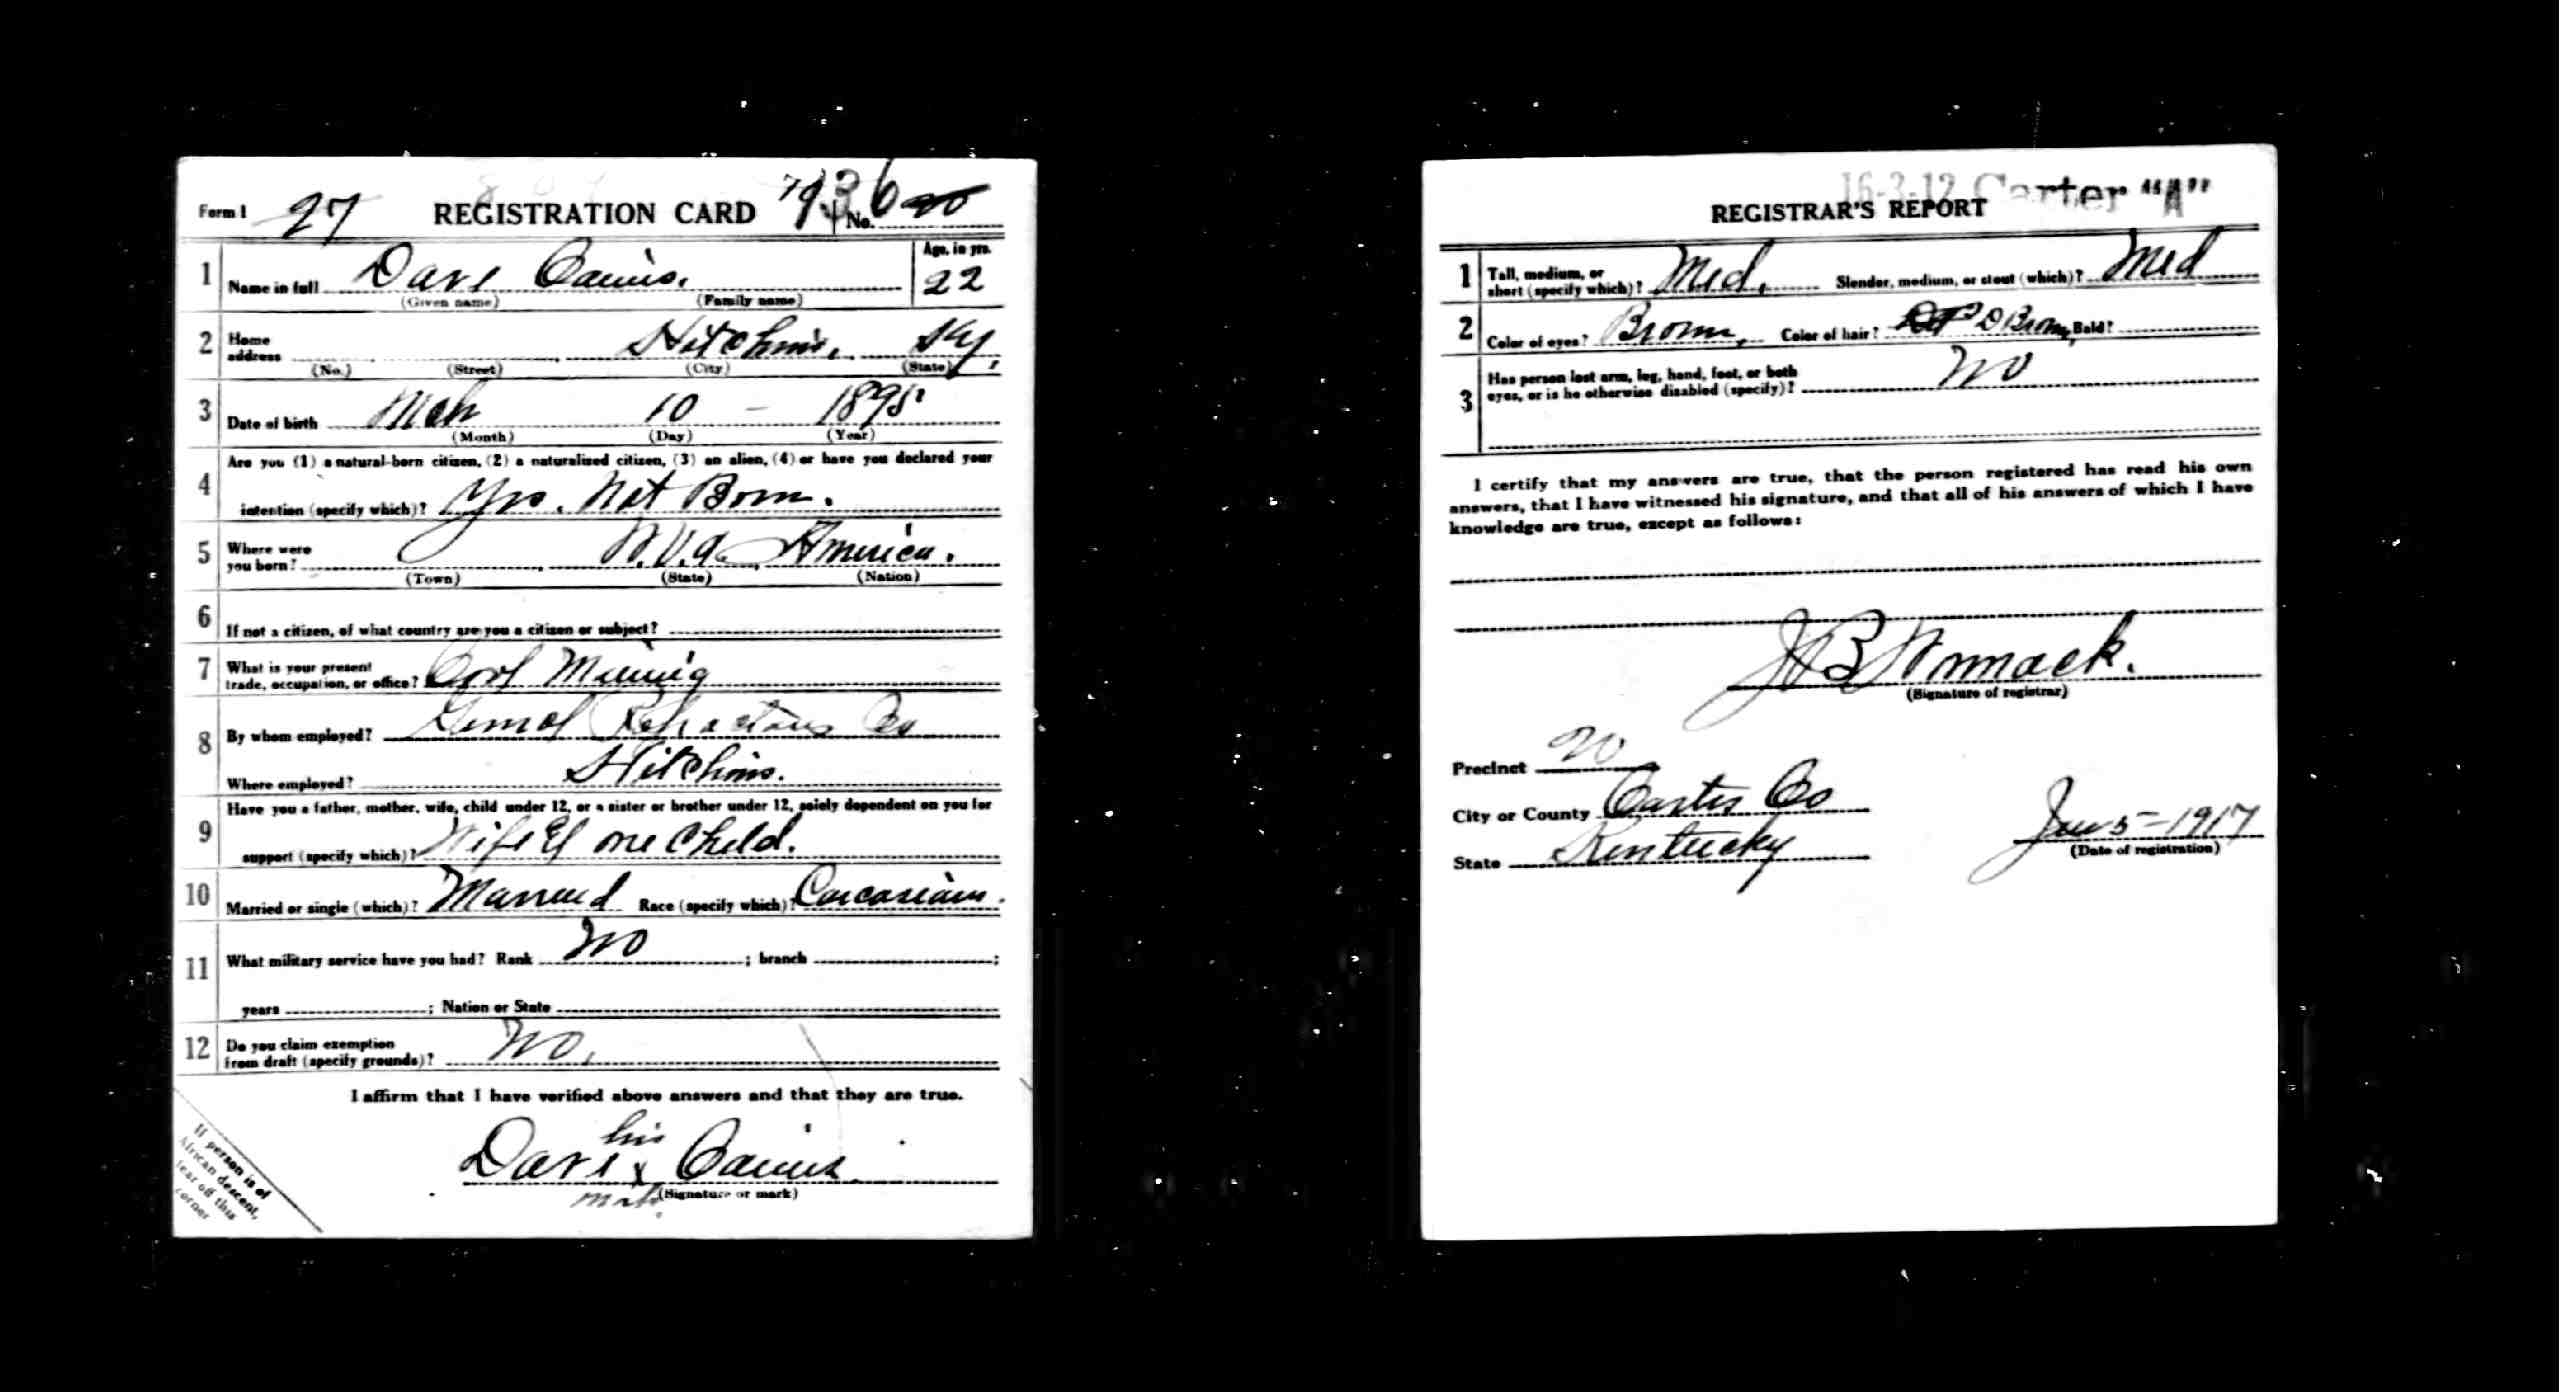 Form 1 27 REGISTRATION CARD No.
1 Name in full Dave
(Given name) (Family name)
Age, in yrs.
22
2 Home address Hitchins, Ky,
(No.) (Street) (City) (State)
3 Date of birth Mch 10 - 1895
(Month) (Day) (Year)
4 Are you (1) a natural-born citizen, (2) a naturalized citizen, (3) an alien, (4) or have you declared your
intention (specify which)? Yes. Nat Born.
5 Where were you born? W.Va. America.
(Town) (State) (Nation)
6 If not a citizen, of what country are you a citizen or subject?
7 What is your present
trade, occupation, or office?
8 By whom employed? Refractories Co
Where employed? Hitchins.
9 Have you a father, mother, wife, child under 12, or a sister or brother under 12, solely dependent on you for
support (specify which)? Wife & one Child.
10 Married or single (which)? Married Race (specify which)?
11 What military service have you had? Rank No ; branch ;
years ; Nation or State
12 Do you claim exemption
from draft (specify grounds)? No.
I affirm that I have verified above answers and that they are true.
his
Dave x
mark (Signature or mark)
If person is of
African descent,
tear off this
corner
16-3-12 Carter "A"
REGISTRAR'S REPORT
1 Tall, medium, or
short (specify which)? Med. Slender, medium, or stout (which)? Med
2 Color of eyes? Brown, Color of hair? D Brown, Bald?
3 Has person lost arm, leg, hand, foot, or both
eyes, or is he otherwise disabled (specify)? No
I certify that my answers are true, that the person registered has read his own
answers, that I have witnessed his signature, and that all of his answers of which I have
knowledge are true, except as follows:
J B Womack.
(Signature of registrar)
Precinct
City or County Carter Co
State Kentucky
Jun 5-1917
(Date of registration)